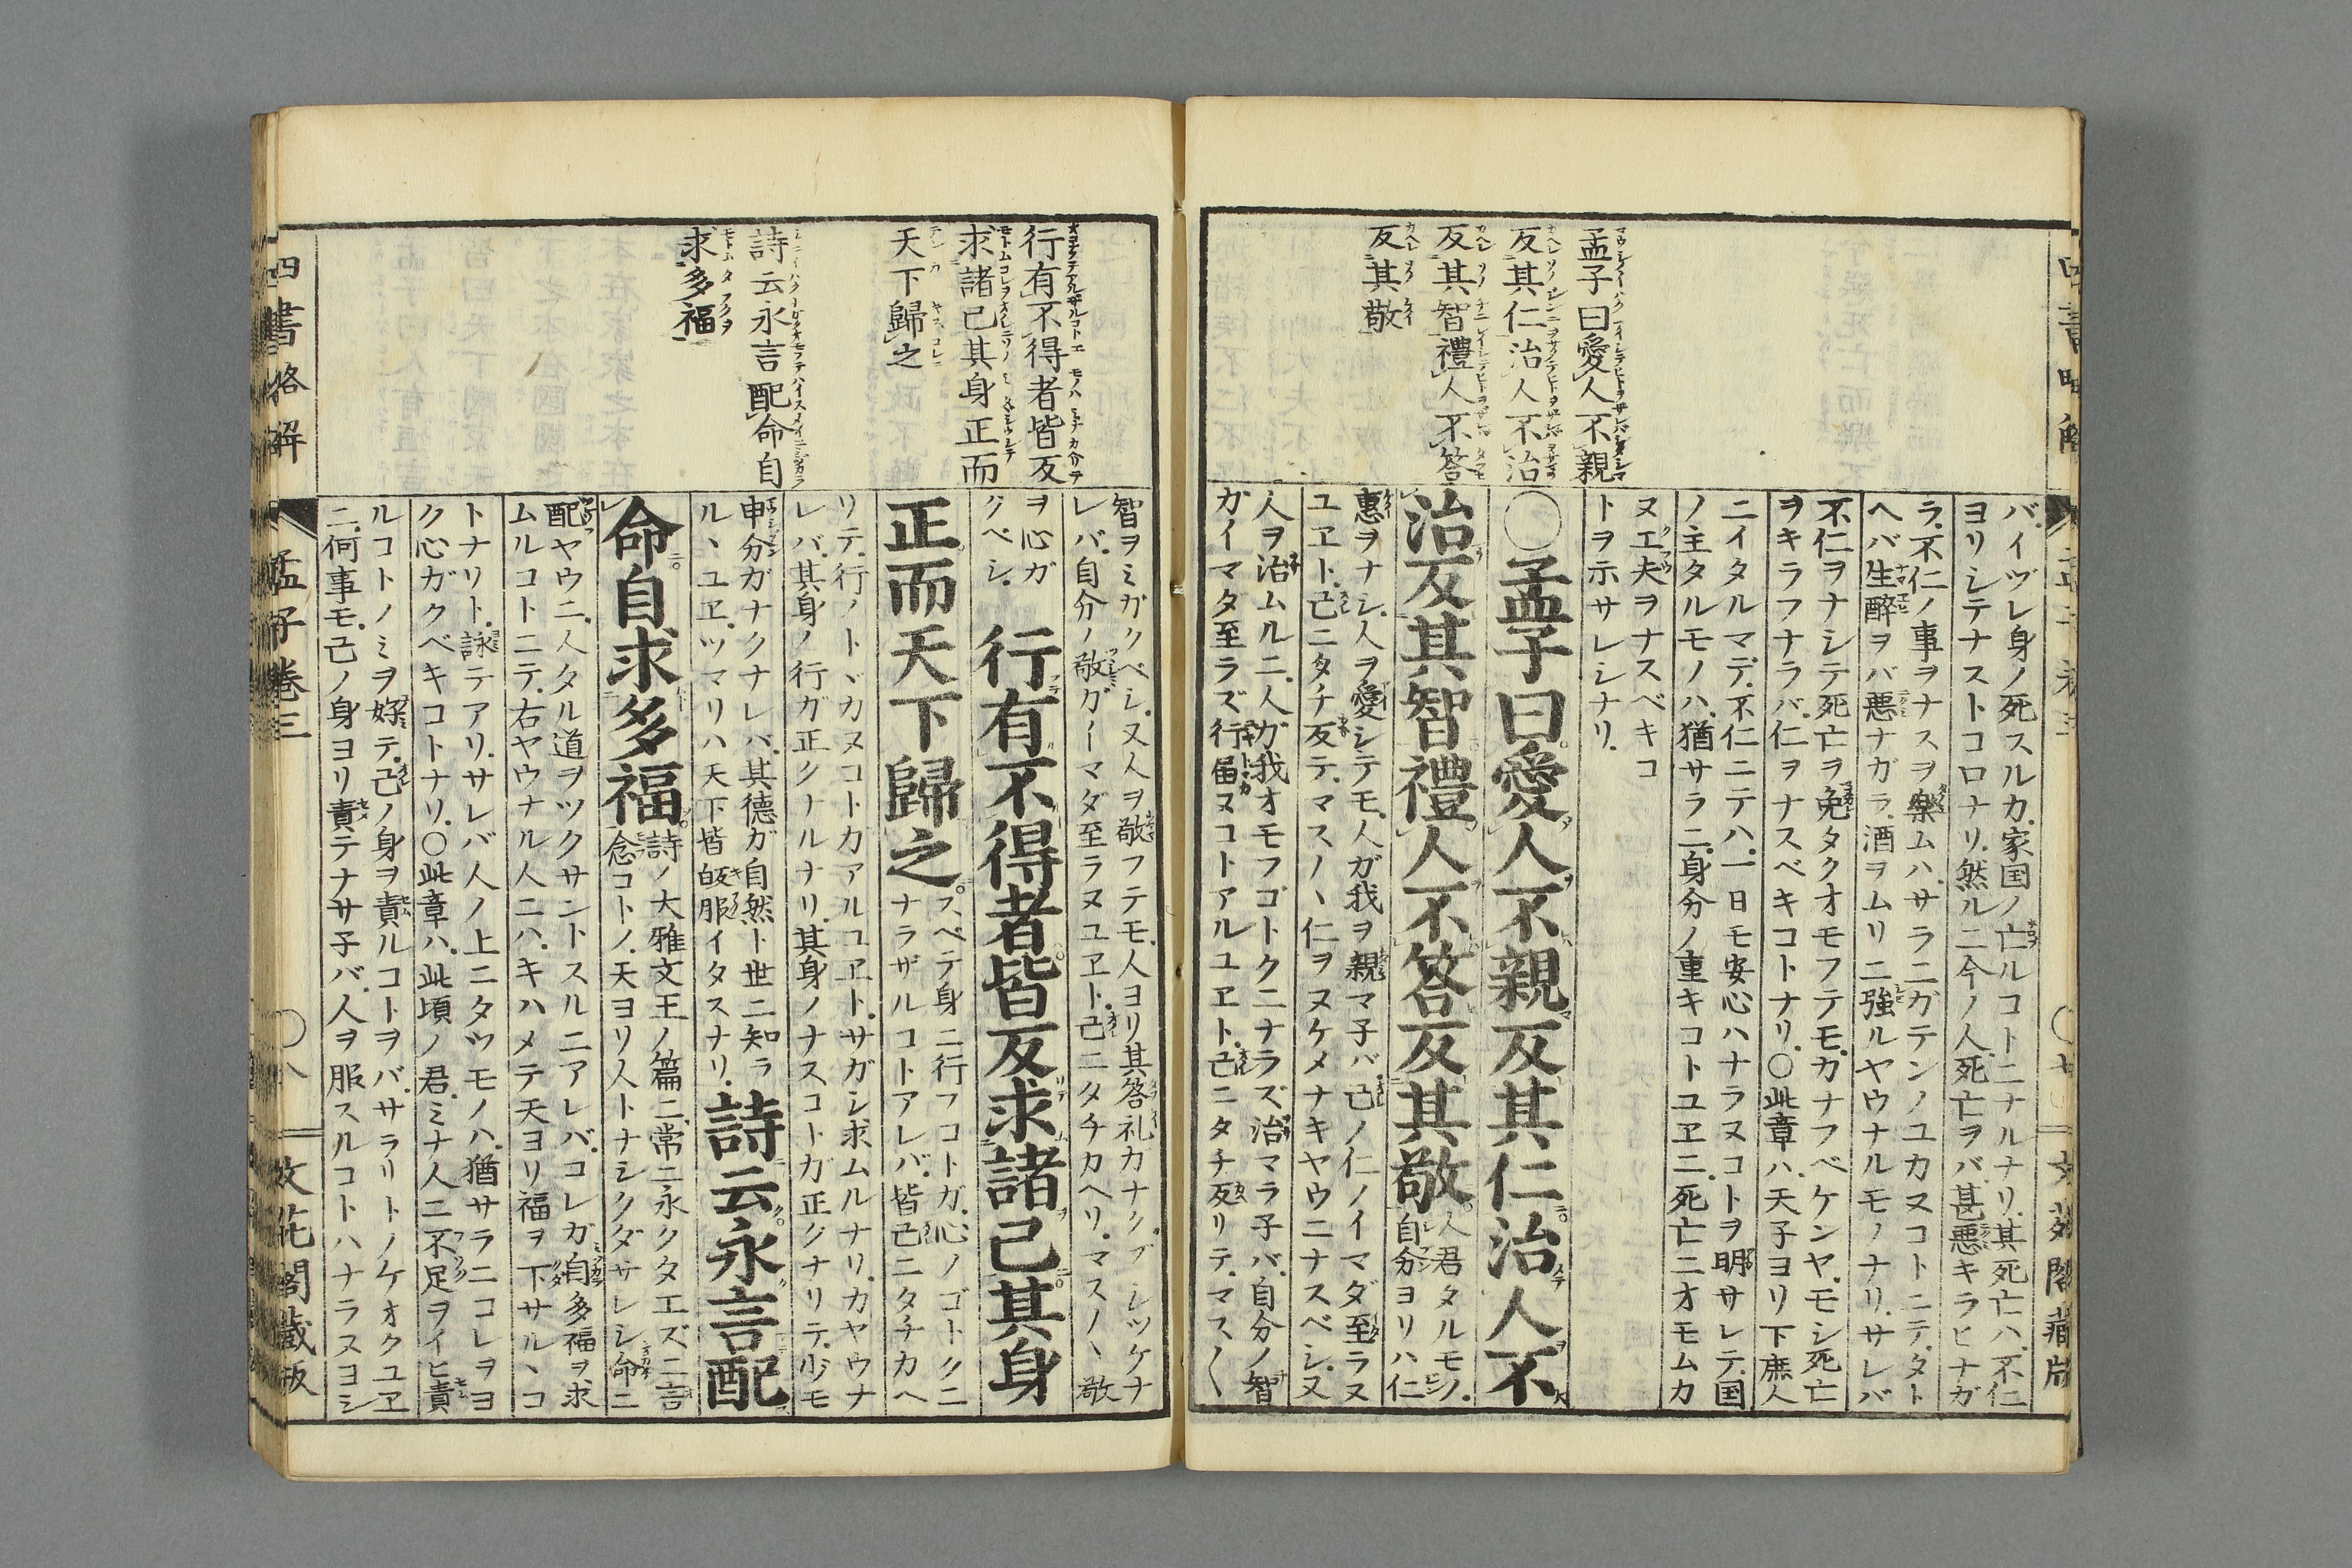 孟子曰愛人不親
反其仁治人不治
反其智禮人不答
反其敬
バ.イヅレ身ノ死スルカ.家国ノ亡ルコトニナルナリ.其死亡ハ.不仁
ヨリシテナストコロナリ.然ルニ今ノ人.死亡ヲバ.甚悪キラヒナガ
ラ.不仁ノ事ヲナスヲ樂ムハ.サラニガテンノユカヌコトニテ.タト
ヘバ生醉ヲバ悪ナガラ.酒ヲムリニ強ルヤウナルモノナリ.サレバ
不仁ヲナシテ死亡ヲ免タクオモフテモ.カナフベケンヤ.モシ死亡
ヲキラフナラバ.仁ヲナスベキコトナリ.○此章ハ.天子ヨリ下庶人
ニイタルマデ.不仁ニテハ.一日モ安心ハナラヌコトヲ明サレテ.国
ノ主タルモノハ.猶サラニ.身分ノ重キコトユヱニ.死亡ニオモムカ
ヌエ夫ヲナスベキコ
トヲ示サレシナリ.
○孟子曰愛人不親反其仁治人不
治反其智禮人不答反其敬
人君タルモノ.
自分ヨリハ仁
惠ヲナシ.人ヲ愛シテモ.人ガ我ヲ親マ子バ.己ノ仁ノイマダ至ラヌ
ユヱト.己ニタチ反テ.マスノヽ仁ヲヌケメナキヤウニナスベシ.又
人ヲ治ムルニ.人ガ我オモフゴトクニナラズ治マラ子バ.自分ノ智
ガイマタ至ラズ行届ヌコトアルユヱト.己ニタチ反リテ.マス〱
行有不得者皆反
求諸己其身正而
天下歸之
詩云永言配命自
求多福
智ヲミガクベシ.又人ヲ敬フテモ.人ヨリ其答礼ガナクブシツケナ
レバ.自分ノ敬ガイマダ至ラヌユヱト.己ニタチカヘリ.マスノヽ敬
ヲ心ガ
クベシ.
行有不得者皆反求諸己其身
正而天下歸之
スベテ身ニ行フコトガ.心ノゴトクニ
ナラザルコトアレバ.皆己ニタチカヘ
リテ.行ノトヾカヌコトカアルユヱト.サガシ求ムルナリ.カヤウナ
レバ.其身ノ行ガ正クナルナリ.其身ノナスコトガ正クナリテ.少モ
申分ガナクナレバ.其德ガ自然ト世ニ知ラ
ルヽユヱ.ツマリハ天下皆皈服イタスナリ.
詩云永言配
命自求多福
詩ノ大雅文王ノ篇ニ.常ニ永クタエズニ言
念コトノ.天ヨリ人トナシクダサレシ命ニ
配ヤウニ.人タル道ヲツクサントスルニアレバ.コレガ自多福ヲ求
ムルコトニテ.右ヤウナル人ニハ.キハメテ天ヨリ福ヲ下サルヽコ
トナリト.詠テアリ.サレバ人ノ上ニタツモノハ.猶サラニコレヲヨ
ク心ガクベキコトナリ.○此章ハ.此頃ノ君.ミナ人ニ不足ヲイヒ責
ルコトノミヲ好テ.己ノ身ヲ責ルコトヲバ.サラリトノケオクユヱ
ニ.何事モ.己ノ身ヨリ責テナサ子バ.人ヲ服スルコトハナラヌヨシ
四書略解
孟子卷三
○八
文花閣藏板